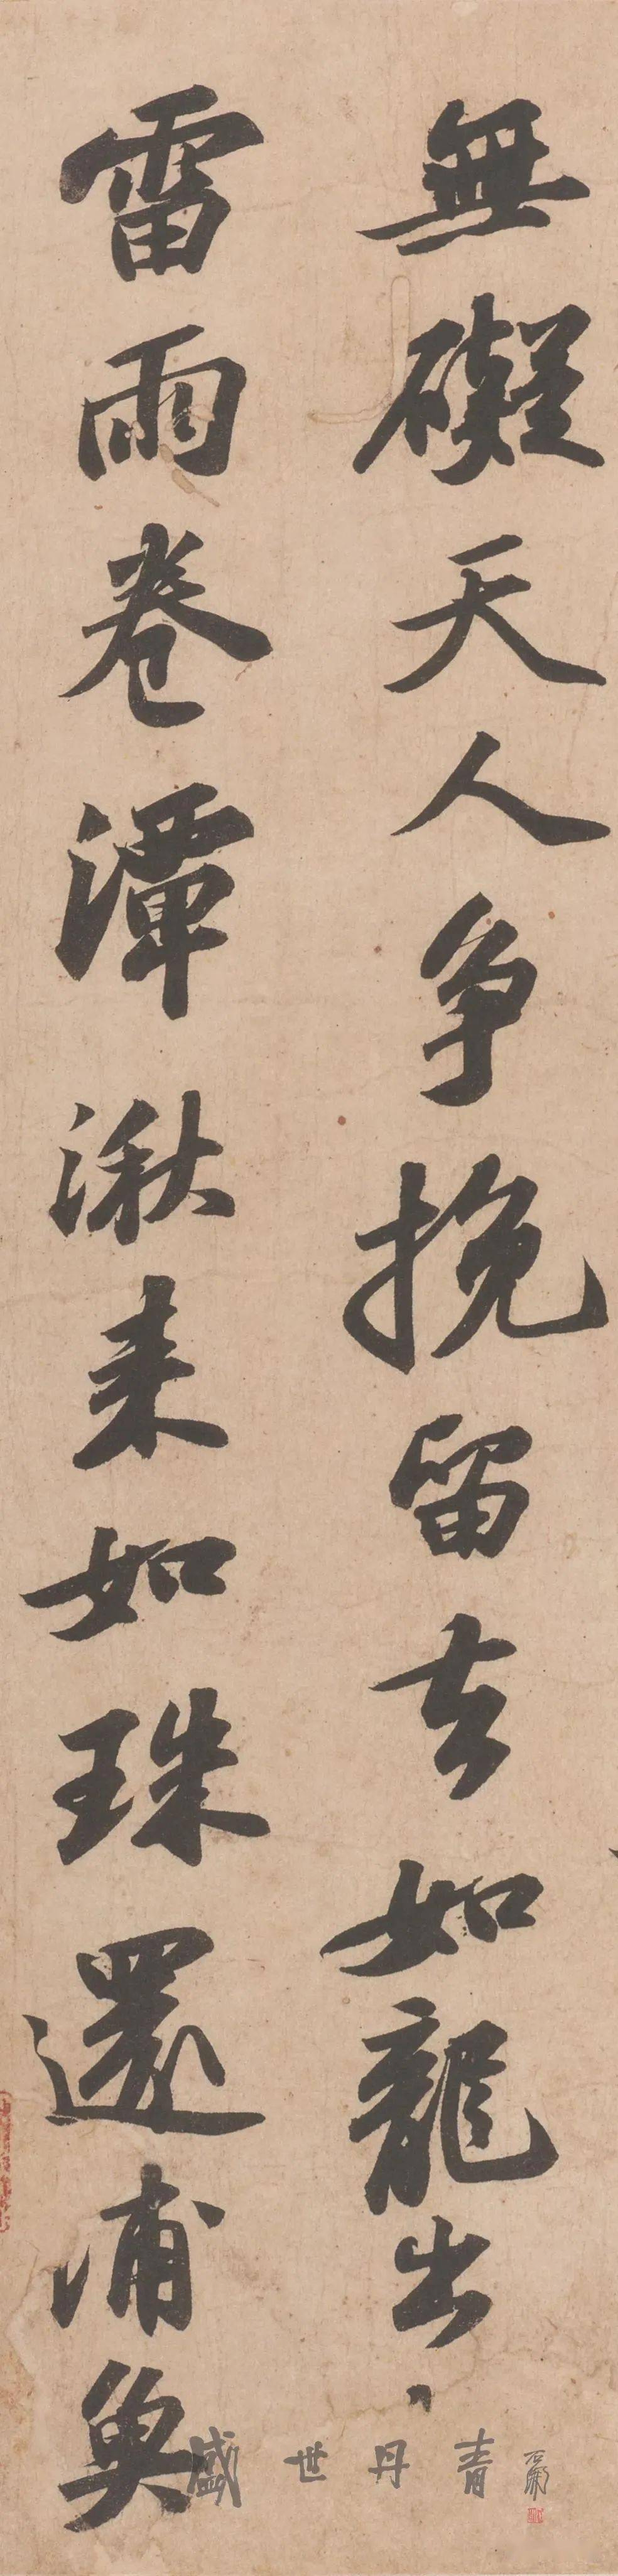 無礙天人争挽留去如龍出
雷雨卷潭湫来如珠還浦魚
盛世丹青